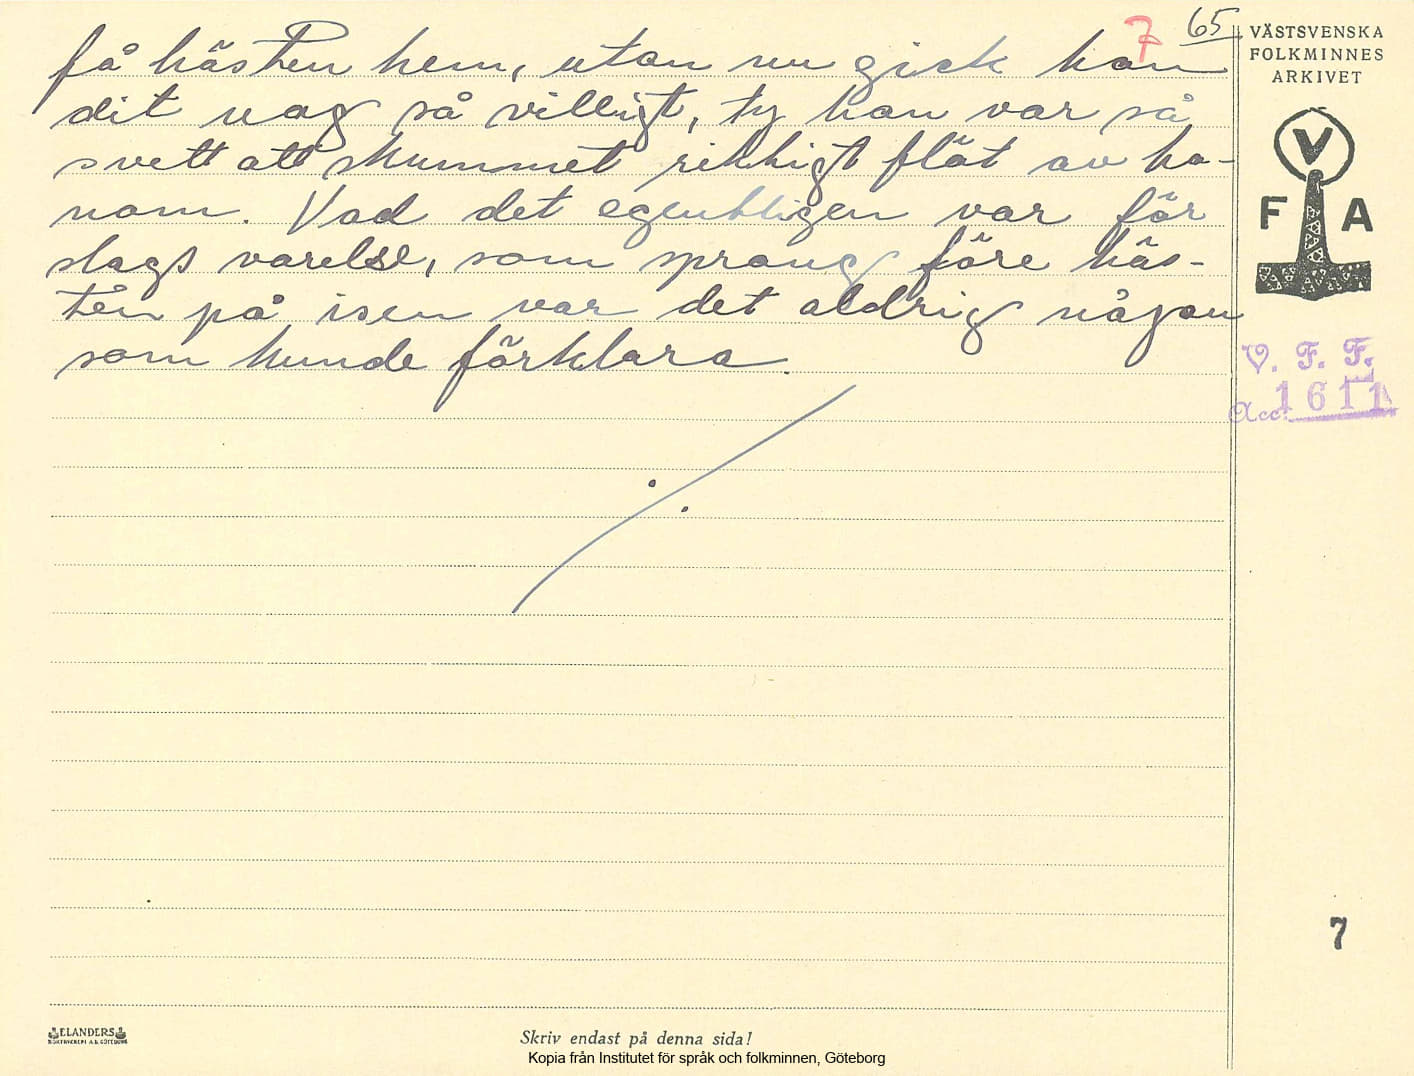 7 65
få hästen hem, utan nu gick han
dit nog så villigt, ty han var så
svett att skummet rikhigt flöt av ho-
nom. Vad det egentligen var för
slags varelse, som sprang före häs-
ten på isen var det aldrig någon
som kunde förklara.
VÄSTSVENSKA
FOLKMINNES
ARKIVET
V
F A
V. F. F.
Acc. 1611
7
ELANDERS
Skriv endast på denna sida!
Kopia från Institutet för språk och folkminnen, Göteborg